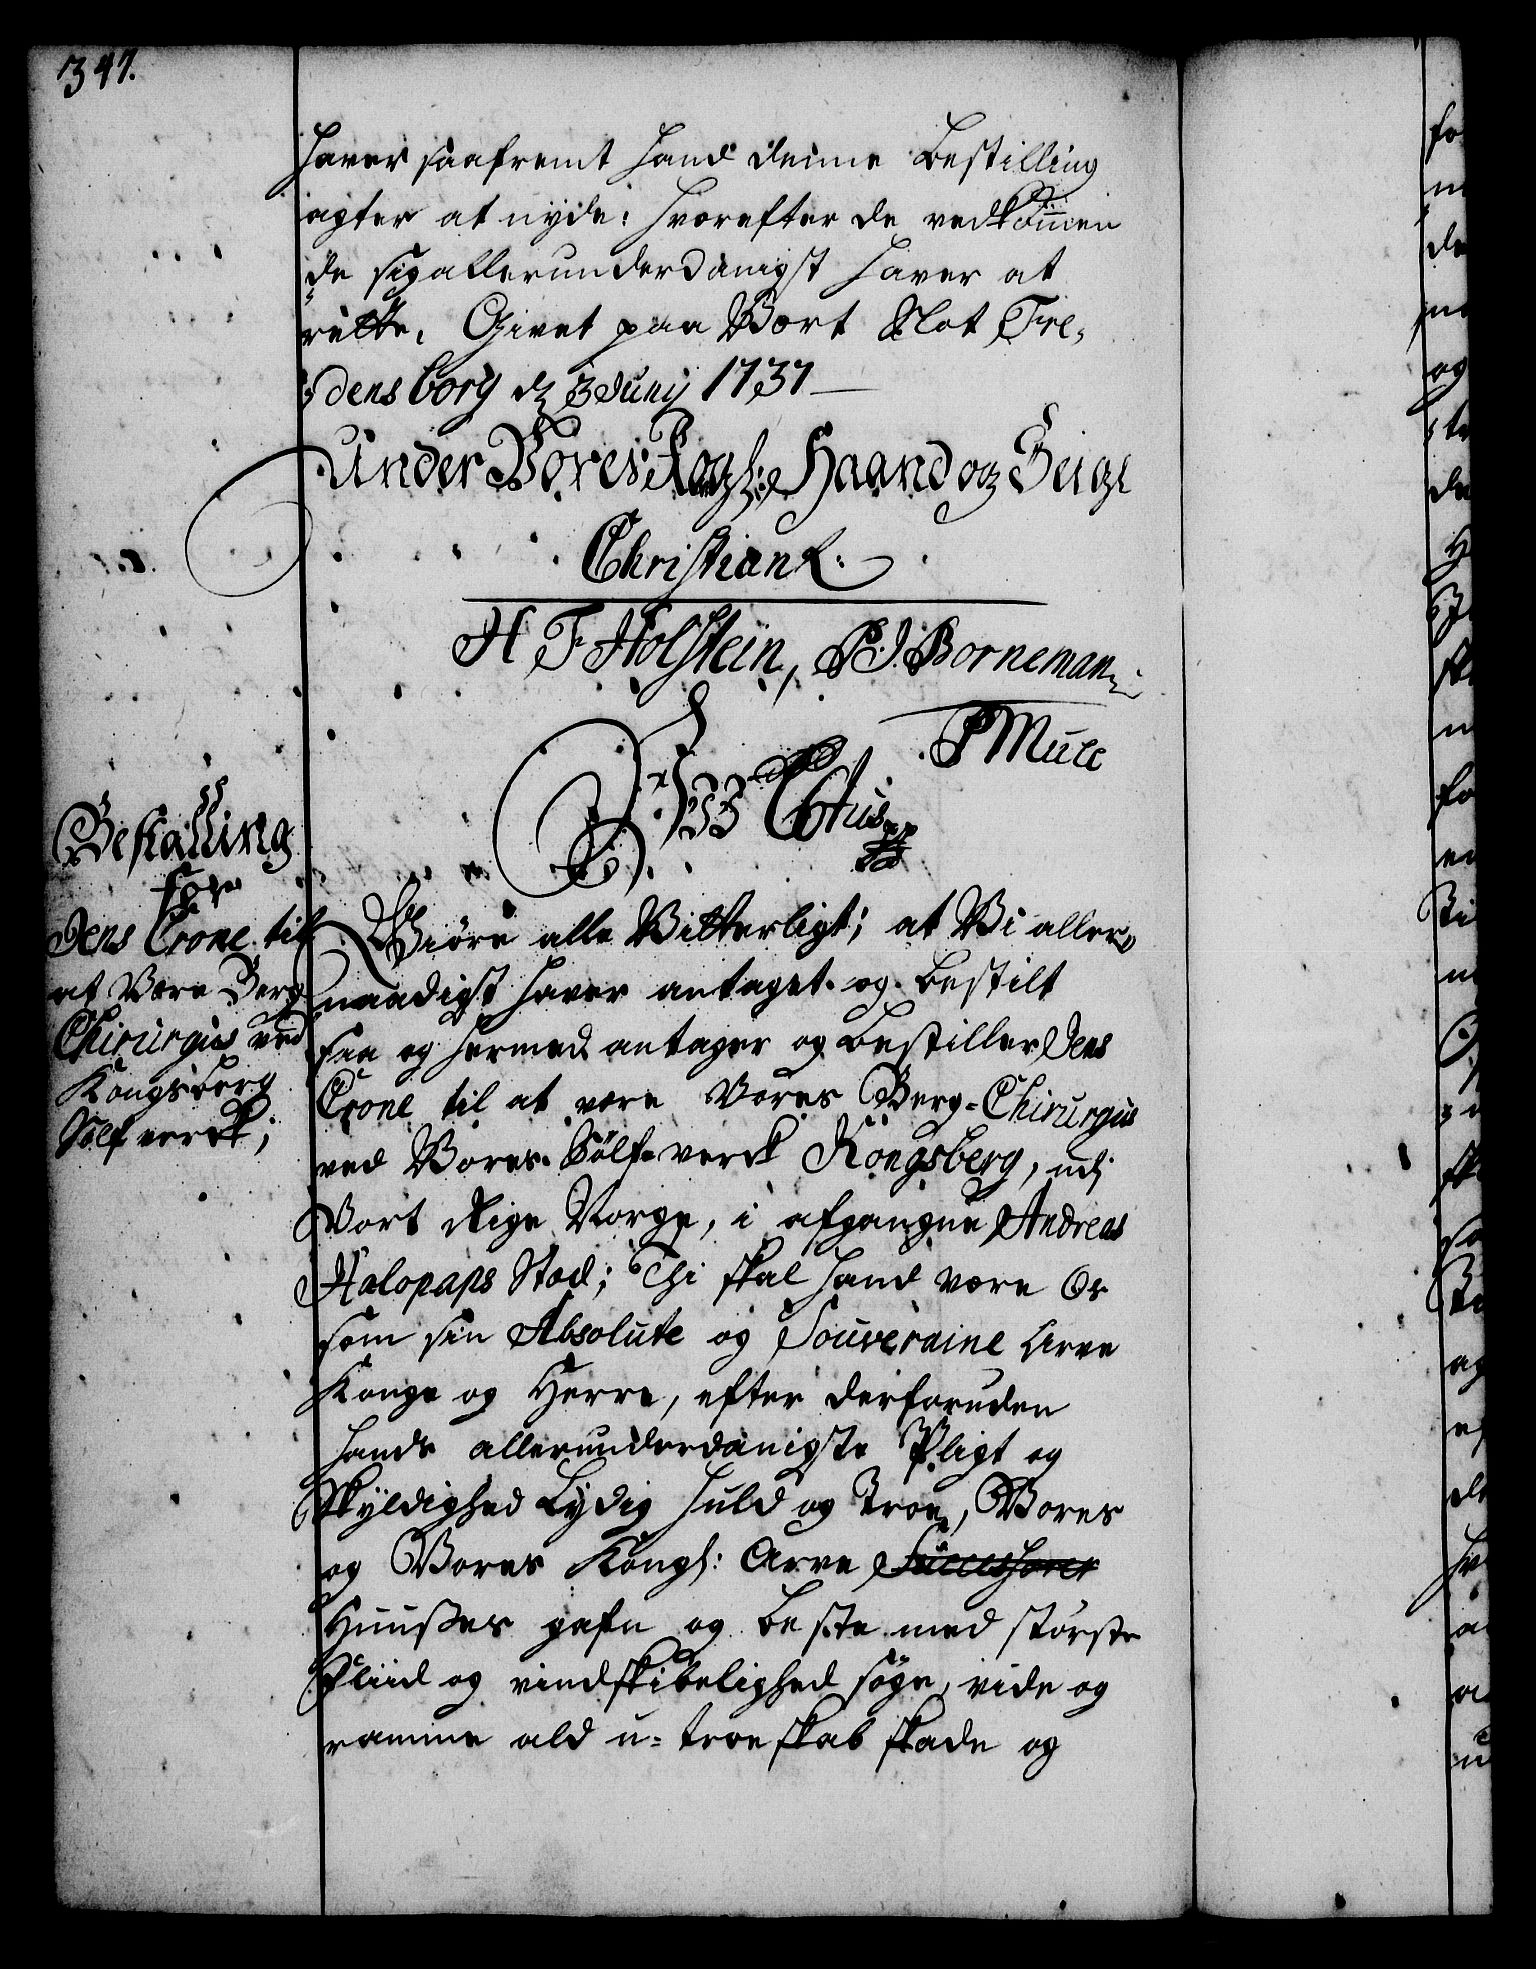 347.
haver saafremt hand denne Bestilling
agter at nyde: hvorefter de vedkommen
de sig allerunderdanigst haver at
rette. Givet paa Vort Slot Fre,
densborg d 3 Juny 1737
Under Vores Kongl: Haand og Seigl
Christian R.
H F Holstein, P. J. Borneman
P Mull
Bestalling
for
Jens Crone til
at Være Berg
Chirurgus ved
Kongsberg
Sølfverck;
Vi C 6tus pp
Giøre alle Vitterligt; at Vi aller,
naadigst haver antaget og bestilt
saa og hermed antager og bestiller Jens
Crone til at være Vores Berg-Chirurgus
ved Vores Sølf-verck Kongsberg, udj
Vort Rige Norge, i afgangne Andreas
Halopaps Sted; Thi skal hand være Os
som sin Absolute og Souveraine Arve
Konge og Herre, efter derforuden
hands allerunderdanigste Pligt og
Skyldighed Lydig huld og troe, Vores
og Vores Kongl: Arve Successorer
Huuses gafn og beste med største
Fliid og vindskibelighed søge, vide og
ramme ald u-troeskab skade og